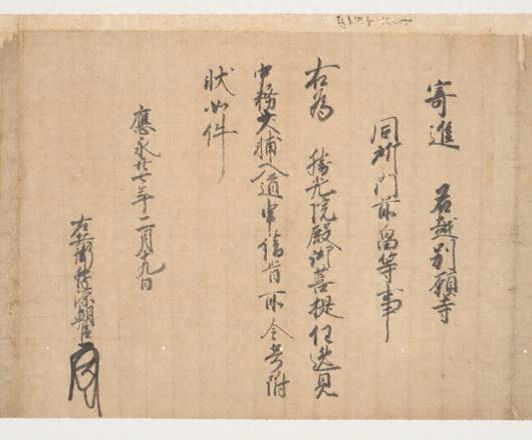 寄進 名越別願寺
同所門前畠等事
右為 勝光院殿御菩提任逸見
中務大輔入道申請旨所令寄附
状如件
應永廿年二月九日
左兵衛源朝臣